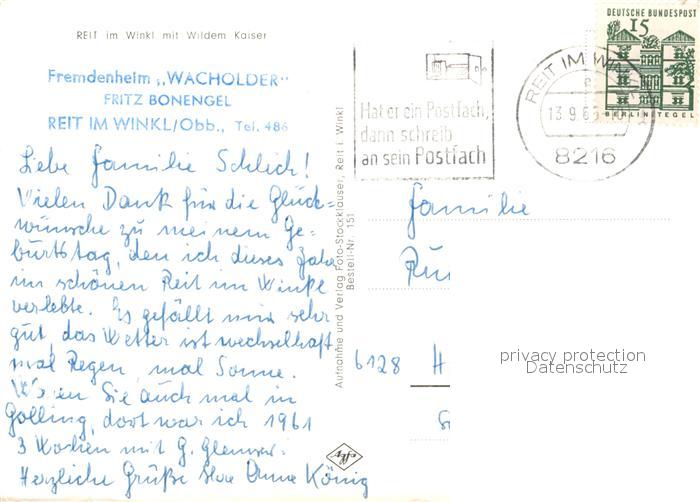 REIT im Winkl mit Wildem Kaiser
Fremdenheim „WACHOLDER"
FRITZ BONENGEL
REIT IM WINKL/Obb., Tel. 486
Liebe Familie Schlich!
Vielen Dank für die Glück=
wünsche zu meinem Ge=
burtstag, den ich dieses Jahr
im schönen Reit im Winkl
verlebte. Es gefällt mir sehr
gut, das Wetter ist wechselhaft
mal Regen, mal Sonne.
Sie auch mal in
Golling, dort war ich 1961
3 Wochen mit G.
Herzliche Grüße Ihre Anna König
Aufnahme und Verlag Foto-Stockklauser, Reit i. Winkl
Bestell-Nr. 151
Agfa
Hat er ein Postfach,
dann schreib
an sein Postfach
REIT IM WINKL
13.9.65
8216
DEUTSCHE BUNDESPOST
15
BERLIN/TEGEL
Familie
6128 H
privacy protection
Datenschutz